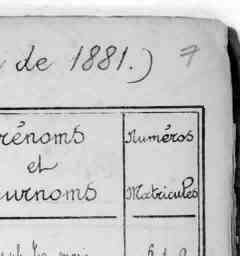 de 1881.) 7
rénoms
et
urnoms
Numéros
Matricules